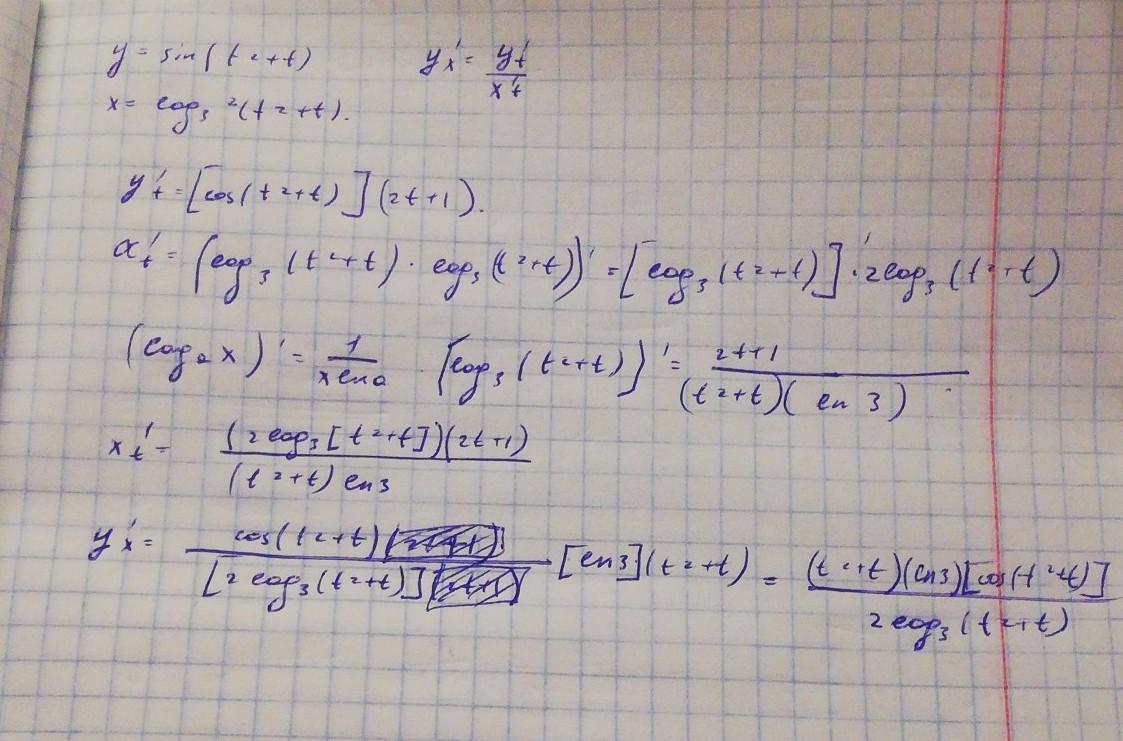 y = sin(t²+t) y'ₓ = y'ₜ / x'ₜ
x = log₃²(t²+t).
y'ₜ = [cos(t²+t)](2t+1).
x'ₜ = (log₃(t²+t) · log₃(t²+t))' = [log₃(t²+t)]' · 2log₃(t²+t)
(logₐx)' = 1 / (x ln a) · [log₃(t²+t)]' = (2t+1) / ((t²+t)(ln 3))
x'ₜ = (2log₃[t²+t])(2t+1) / ((t²+t) ln3)
y'ₓ = cos(t²+t) / [2log₃(t²+t)] [ln3](t²+t) = (t²+t)(ln3)[cos(t²+t)] / 2log₃(t²+t)